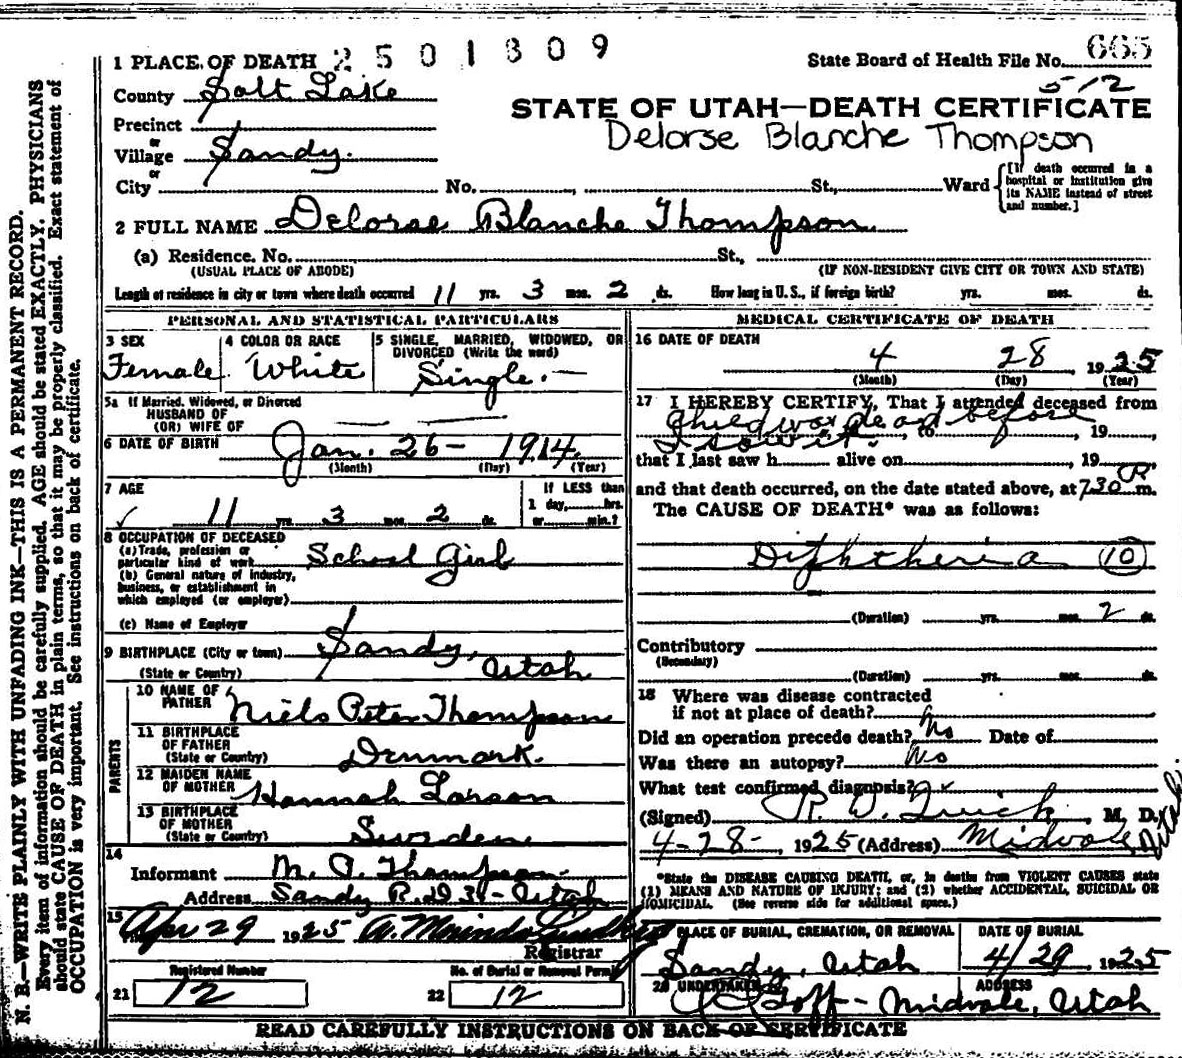 1 PLACE OF DEATH 2501309
State Board of Health File No. 665
County Salt Lake
512
STATE OF UTAH—DEATH CERTIFICATE
Precinct
or
Delorse Blanche Thompson
Village Sandy.
or
City No. , St., Ward
[If death occurred in a
hospital or institution give
its NAME instead of street
and number.]
2 FULL NAME Delorse Blanche Thompson
(a) Residence. No. St.,
(USUAL PLACE OF ABODE) (IF NON-RESIDENT GIVE CITY OR TOWN AND STATE)
Length of residence in city or town where death occurred 11 yrs. 3 mos. 2 ds. How long in U.S., if foreign birth? yrs. mos. ds.
PERSONAL AND STATISTICAL PARTICULARS
3 SEX 4 COLOR OR RACE 5 SINGLE, MARRIED, WIDOWED, OR
DIVORCED (Write the word)
Female White Single.—
5a If Married, Widowed, or Divorced
HUSBAND OF
(OR) WIFE OF
6 DATE OF BIRTH Jan. 26- 1914
(Month) (Day) (Year)
7 AGE If LESS than
1 day, hrs.
✓ 11 yrs. 3 mos. 2 ds. or min.?
8 OCCUPATION OF DECEASED
(a) Trade, profession or
particular kind of work School Girl
(b) General nature of industry,
business, or establishment in
which employed (or employer)
(c) Name of Employer
9 BIRTHPLACE (City or town) Sandy,
(State or Country) Utah
PARENTS
10 NAME OF
FATHER Niels Peter Thompson
11 BIRTHPLACE
OF FATHER
(State or Country) Denmark.
12 MAIDEN NAME
OF MOTHER Hannah Larson
13 BIRTHPLACE
OF MOTHER
(State or Country) Sweden
14
Informant Thompson
Address Sandy R.D.3- Utah
15
Apr 29 1925
Registrar
Registered Number No. of Burial or Removal Permit
21 12 22 12
MEDICAL CERTIFICATE OF DEATH
16 DATE OF DEATH
4 28 1925
(Month) (Day) (Year)
17 I HEREBY CERTIFY, That I attended deceased from
Child was dead before
, to , 19
I saw it.
that I last saw h alive on , 19
and that death occurred, on the date stated above, at 730 P. m.
The CAUSE OF DEATH* was as follows:
Diphtheria 10
(Duration) yrs. mos. 2 ds.
Contributory
(Secondary)
(Duration) yrs. mos. ds.
18 Where was disease contracted
if not at place of death?
Did an operation precede death? No Date of
Was there an autopsy? No
What test confirmed diagnosis?
(Signed) M. D.
4-28- 1925 (Address) Midvale, Utah
*State the DISEASE CAUSING DEATH, or, in deaths from VIOLENT CAUSES state
(1) MEANS AND NATURE OF INJURY; and (2) whether ACCIDENTAL, SUICIDAL OR
HOMICIDAL. (See reverse side for additional space.)
PLACE OF BURIAL, CREMATION, OR REMOVAL DATE OF BURIAL
Sandy, Utah 4/29 1925
20 UNDERTAKER ADDRESS
Goff- Midvale, Utah
READ CAREFULLY INSTRUCTIONS ON BACK OF CERTIFICATE
N. B.—WRITE PLAINLY WITH UNFADING INK—THIS IS A PERMANENT RECORD.
Every item of information should be carefully supplied. AGE should be stated EXACTLY. PHYSICIANS
should state CAUSE OF DEATH in plain terms, so that it may be properly classified. Exact statement of
OCCUPATION is very important. See instructions on back of certificate.